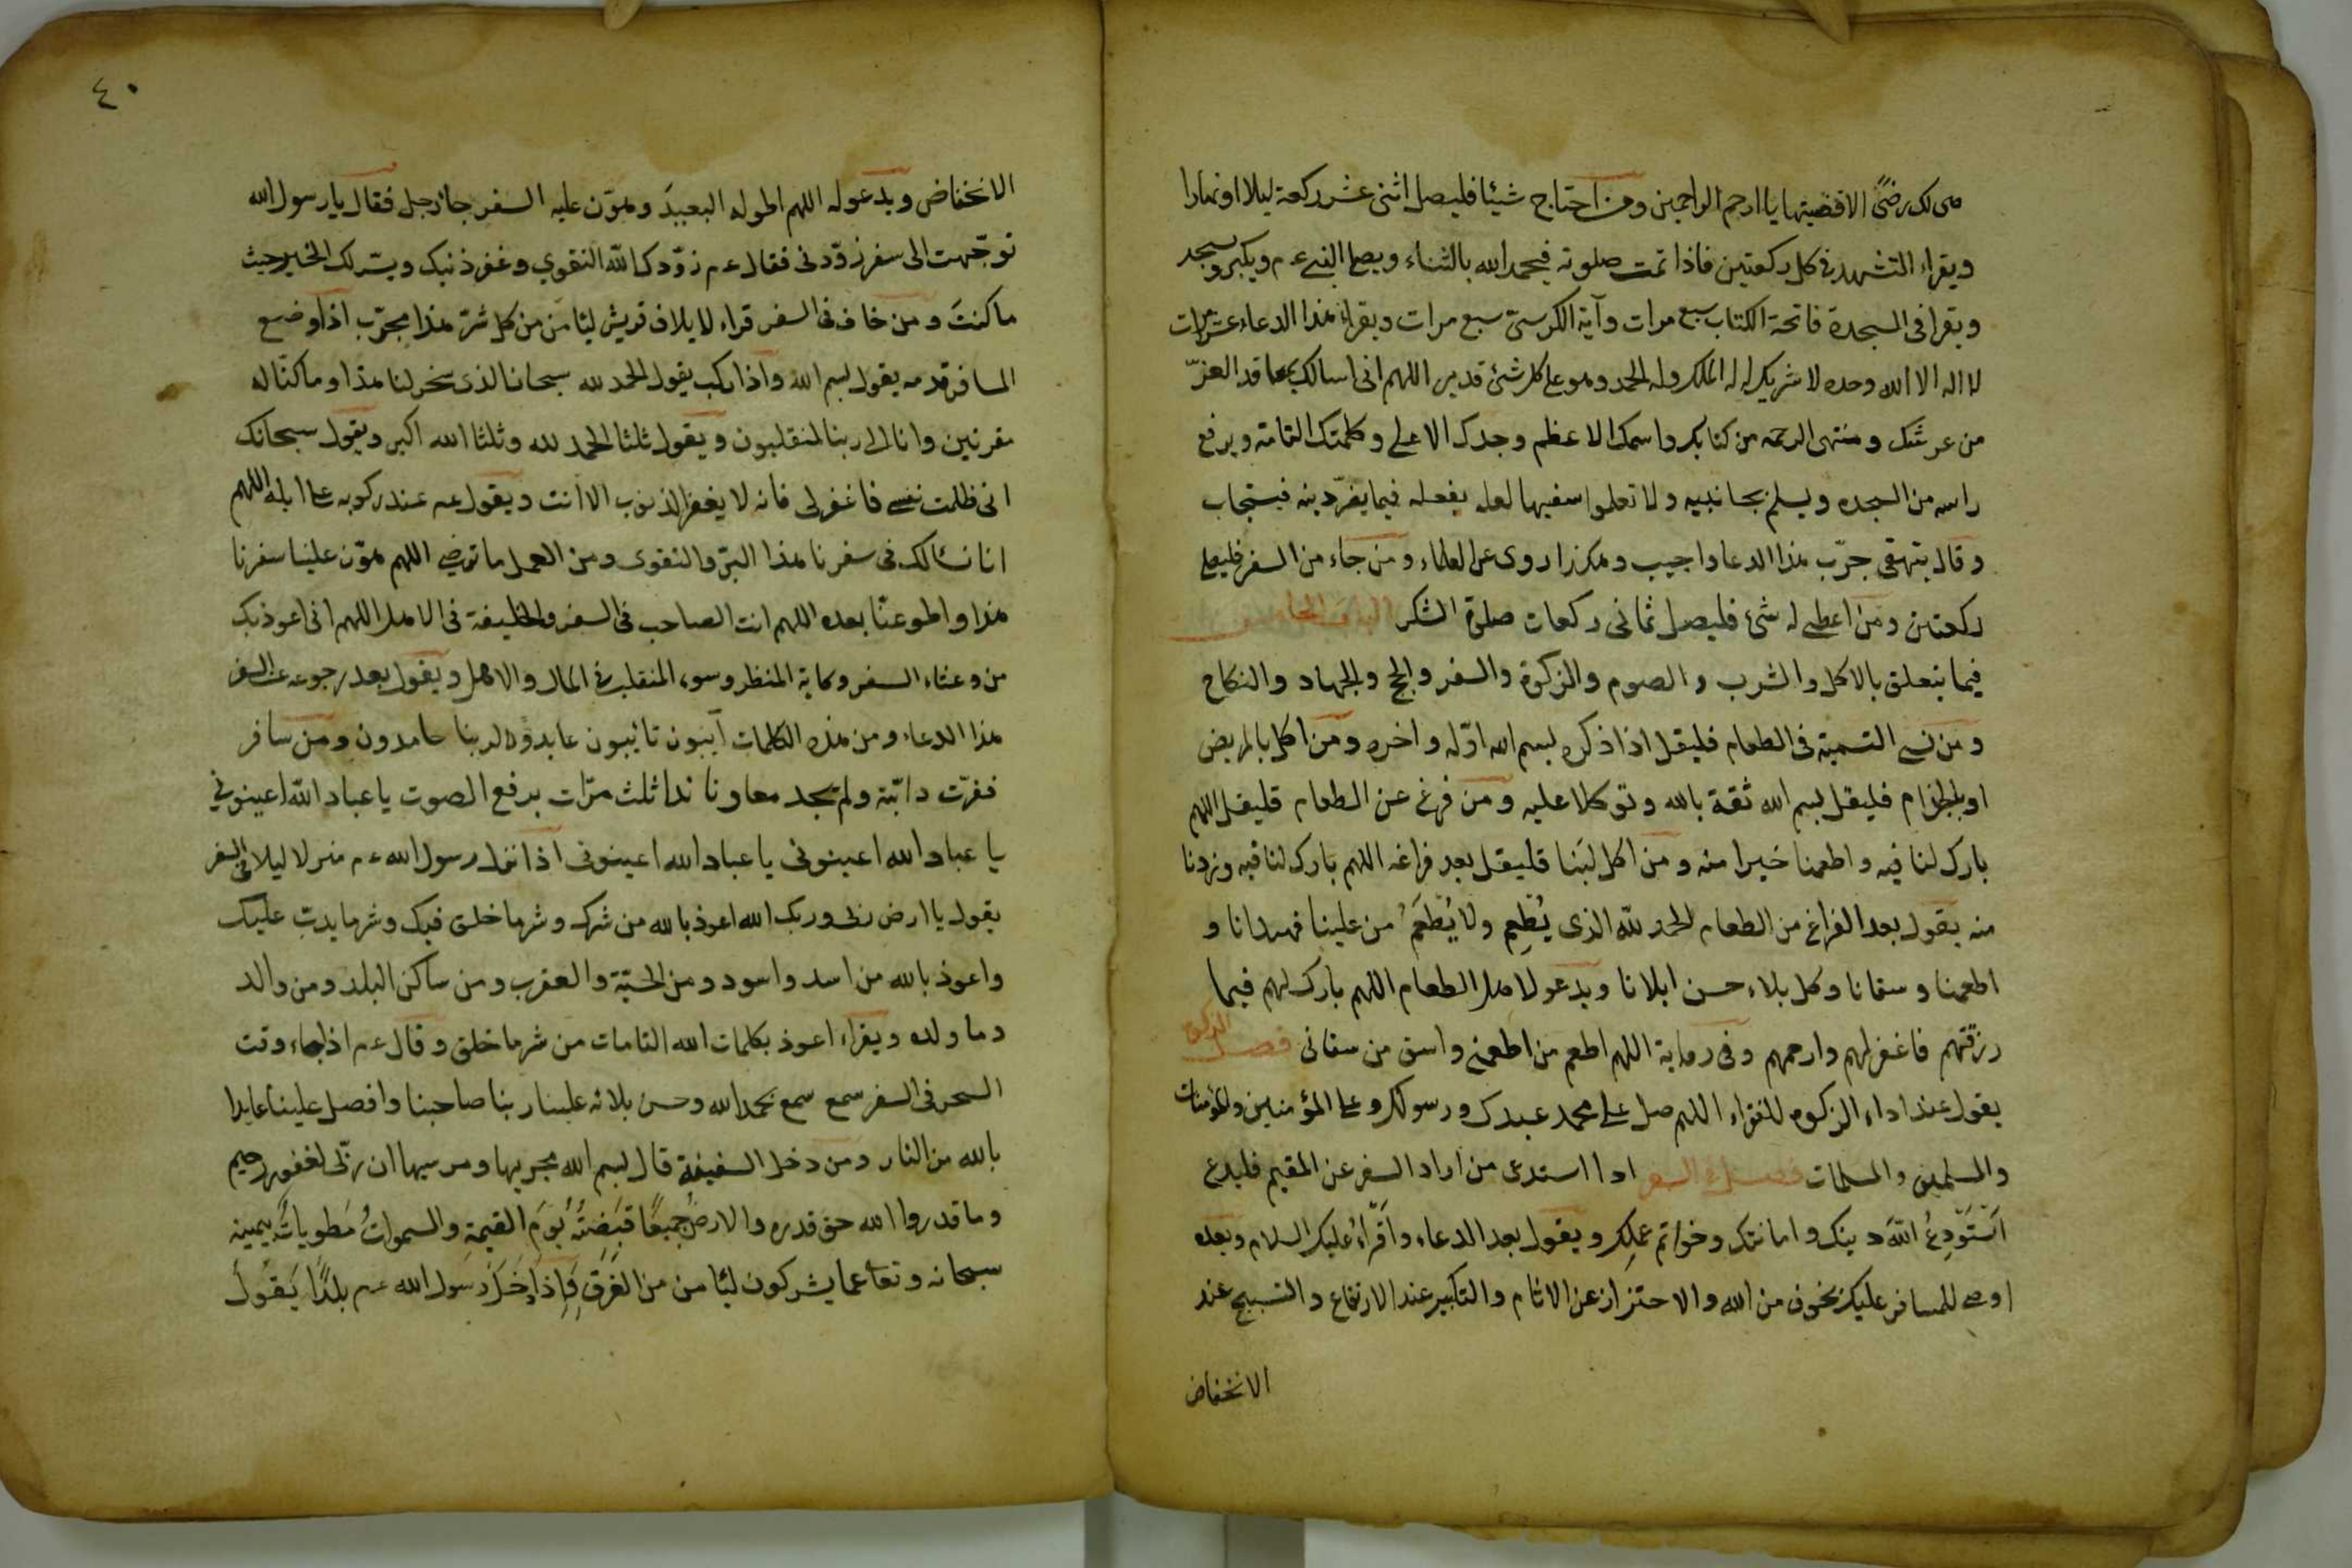 هى لك رضًى الا قضيتها يا ارحم الراحمين ومن احتاج شيئا فليصل اثنى عشر ركعة ليلا او نهارا
ويقراء التشهد فى كل ركعتين فاذا تمت صلوته فيحمد الله بالثناء ويصلى النبى عم ويكبر ويسجد
ويقرا فى السجدة فاتحة الكتاب سبع مرات وآية الكرسىّ سبع مرات ويقراء هذا الدعاء عشر مرات
لا اله الا الله وحده لا شريك له له الملك وله الحمد وهو على كل شئ قدير اللهم انى اسالك بمعاقد العزّ
من عرشك ومنتهى الرحمه من كتابك واسمك الاعظم وجدك الاعلى وكلمتك التامة ويرفع
راسه من السجده ويسلم بجانبيه ولا تعلموا سفيها لعله يفعله فيستجاب
وقال بيهقى جرّب هذا الدعا واجيب وهكذا روى عن العلماء ومن جاء من السفر فليصلى
ركعتين ومن اعطى له شئ فليصل ثمانى ركعات صلوة الشكر
فيما يتعلق بالاكل والشرب والصوم والزكوة والسفر والحج والجهاد والنكاح
ومن نسى التسمية فى الطعام فليقل اذا ذكره بسم الله اوّله واخره ومن اكل بالمريض
او بالجزام فليقل بسم الله ثقة بالله وتوكلا عليه ومن فرغ عن الطعام فليقل اللهم
بارك لنا فيه واطعمنا خيرا منه ومن اكل لبَنا فليقل بعد فراغه اللهم بارك لنا فيه وزدنا
منه يقول بعد الفراغ من الطعام الحمد للّه الذى يُطْعِم ولا يُطْعَمُ من علينا فهدانا و
اطعمنا وسقانا وكل بلاء حسن ابلانا ويدعو لاهل الطعام اللهم بارك لهم فيما
رزقتهم فاغفر لهم وارحمهم وفى رواية اللهم اطعم من اطعمنى واسق من سقانى فصل الزكوة
يقول عند اداء الزكوه للفقراء اللهم صل على محمد عبدك ورسولك وعلى المؤمنين والمؤمنات
والمسلمين والمسلمات فصل فى السفر اذا استدعى من اراد السفر عن المقيم فليدع
اَسْتَوْدِعُ اللّهَ دينك وامانتك وخواتم عملِك ويقول بعد الدعاء واَقْرَاءُ عليك السلام وبعده
اوصى للمسافر عليك بخوف من الله والاحتراز عن الاثام والتكبير عند الارتفاع والتسبيح عند
الانخفاض
٤٠
الانخفاض ويدعو له اللهم اطو له البعيدَ وهوّن عليه السفر جاء رجل فقال يا رسول الله
توجّهت الى سفر زوّدنى فقال عم زوّدك اللّه التقوى وغفر ذنبك ويسّر لك الخير حيث
ما كنتَ ومن خاف فى السفر قراء لايلاف قريش لئامَن من كل شرّ هذا مجرّب اذا وضع
المسافر قدمه يقول بسم الله واذا ركب يقول الحمد لله سبحان الذى سخر لنا هذا وما كنّا له
مقرنين وانا الى ربنا لمنقلبون ويقول ثلثا الحمد لله وثلثا الله اكبر ويقول سبحانك
انى ظلمت نفسى فاغفر لى فانه لا يغفر الذنوب الا انت ويقول عم عند ركوبه على ابله اللهم
انا نسٔالك فى سفرنا هذا البرّ والتقوى ومن العمل ما ترضى اللهم هوّن علينا سفرنا
هذا واطو عنّا بعده اللهم انت الصاحب فى السفر والخليفة فى الاهل اللهم انى اعوذ بك
من وعثاء السفر وكابة المنظر وسوء المنقلب فى المال والاهل ويقول بعد رجوعه عن السفر
هذا الدعاء ومن هذه الكلمات آيبون تائبون عابدون لربنا حامدون ومن سافر
ففرّت دابّته ولم يجد معاونا ندا ثلث مرّات برفع الصوت يا عباد اللّه اعينونى
يا عباد الله اعينونى يا عباد الله اعينونى اذا نزل رسول الله عم منزلا ليلا فى السفر
يقول يا ارض ربى وربك الله اعوذ بالله من شرك وشر ما خلق فيك وشر ما يدبّ عليك
واعوذ بالله من اسد واسود ومن الحيّة والعقرب ومن ساكن البلد ومن والد
وما ولده ويقراء اعوذ بكلمات الله التامات من شر ما خلق وقال عم اذا جاء وقت
السحر فى السفر سمع سمع بحمد الله وحسن بلائه علينا ربنا صاحبنا وافضل علينا عايذا
بالله من النار ومن دخل السفينة قال بسم الله مجريها ومرسيها ان ربّى لغفور رحيم
وما قدروا الله حق قدره والارضُ جميعًا قبَضتُهُ يَومَ القيمة والسموات مَطويات بيمينه
سبحانه وتعالى عما يشركون لئامن من الغَرَق فَاِذا دَخَلَ رسول الله عم بلدًا يَقُولُ